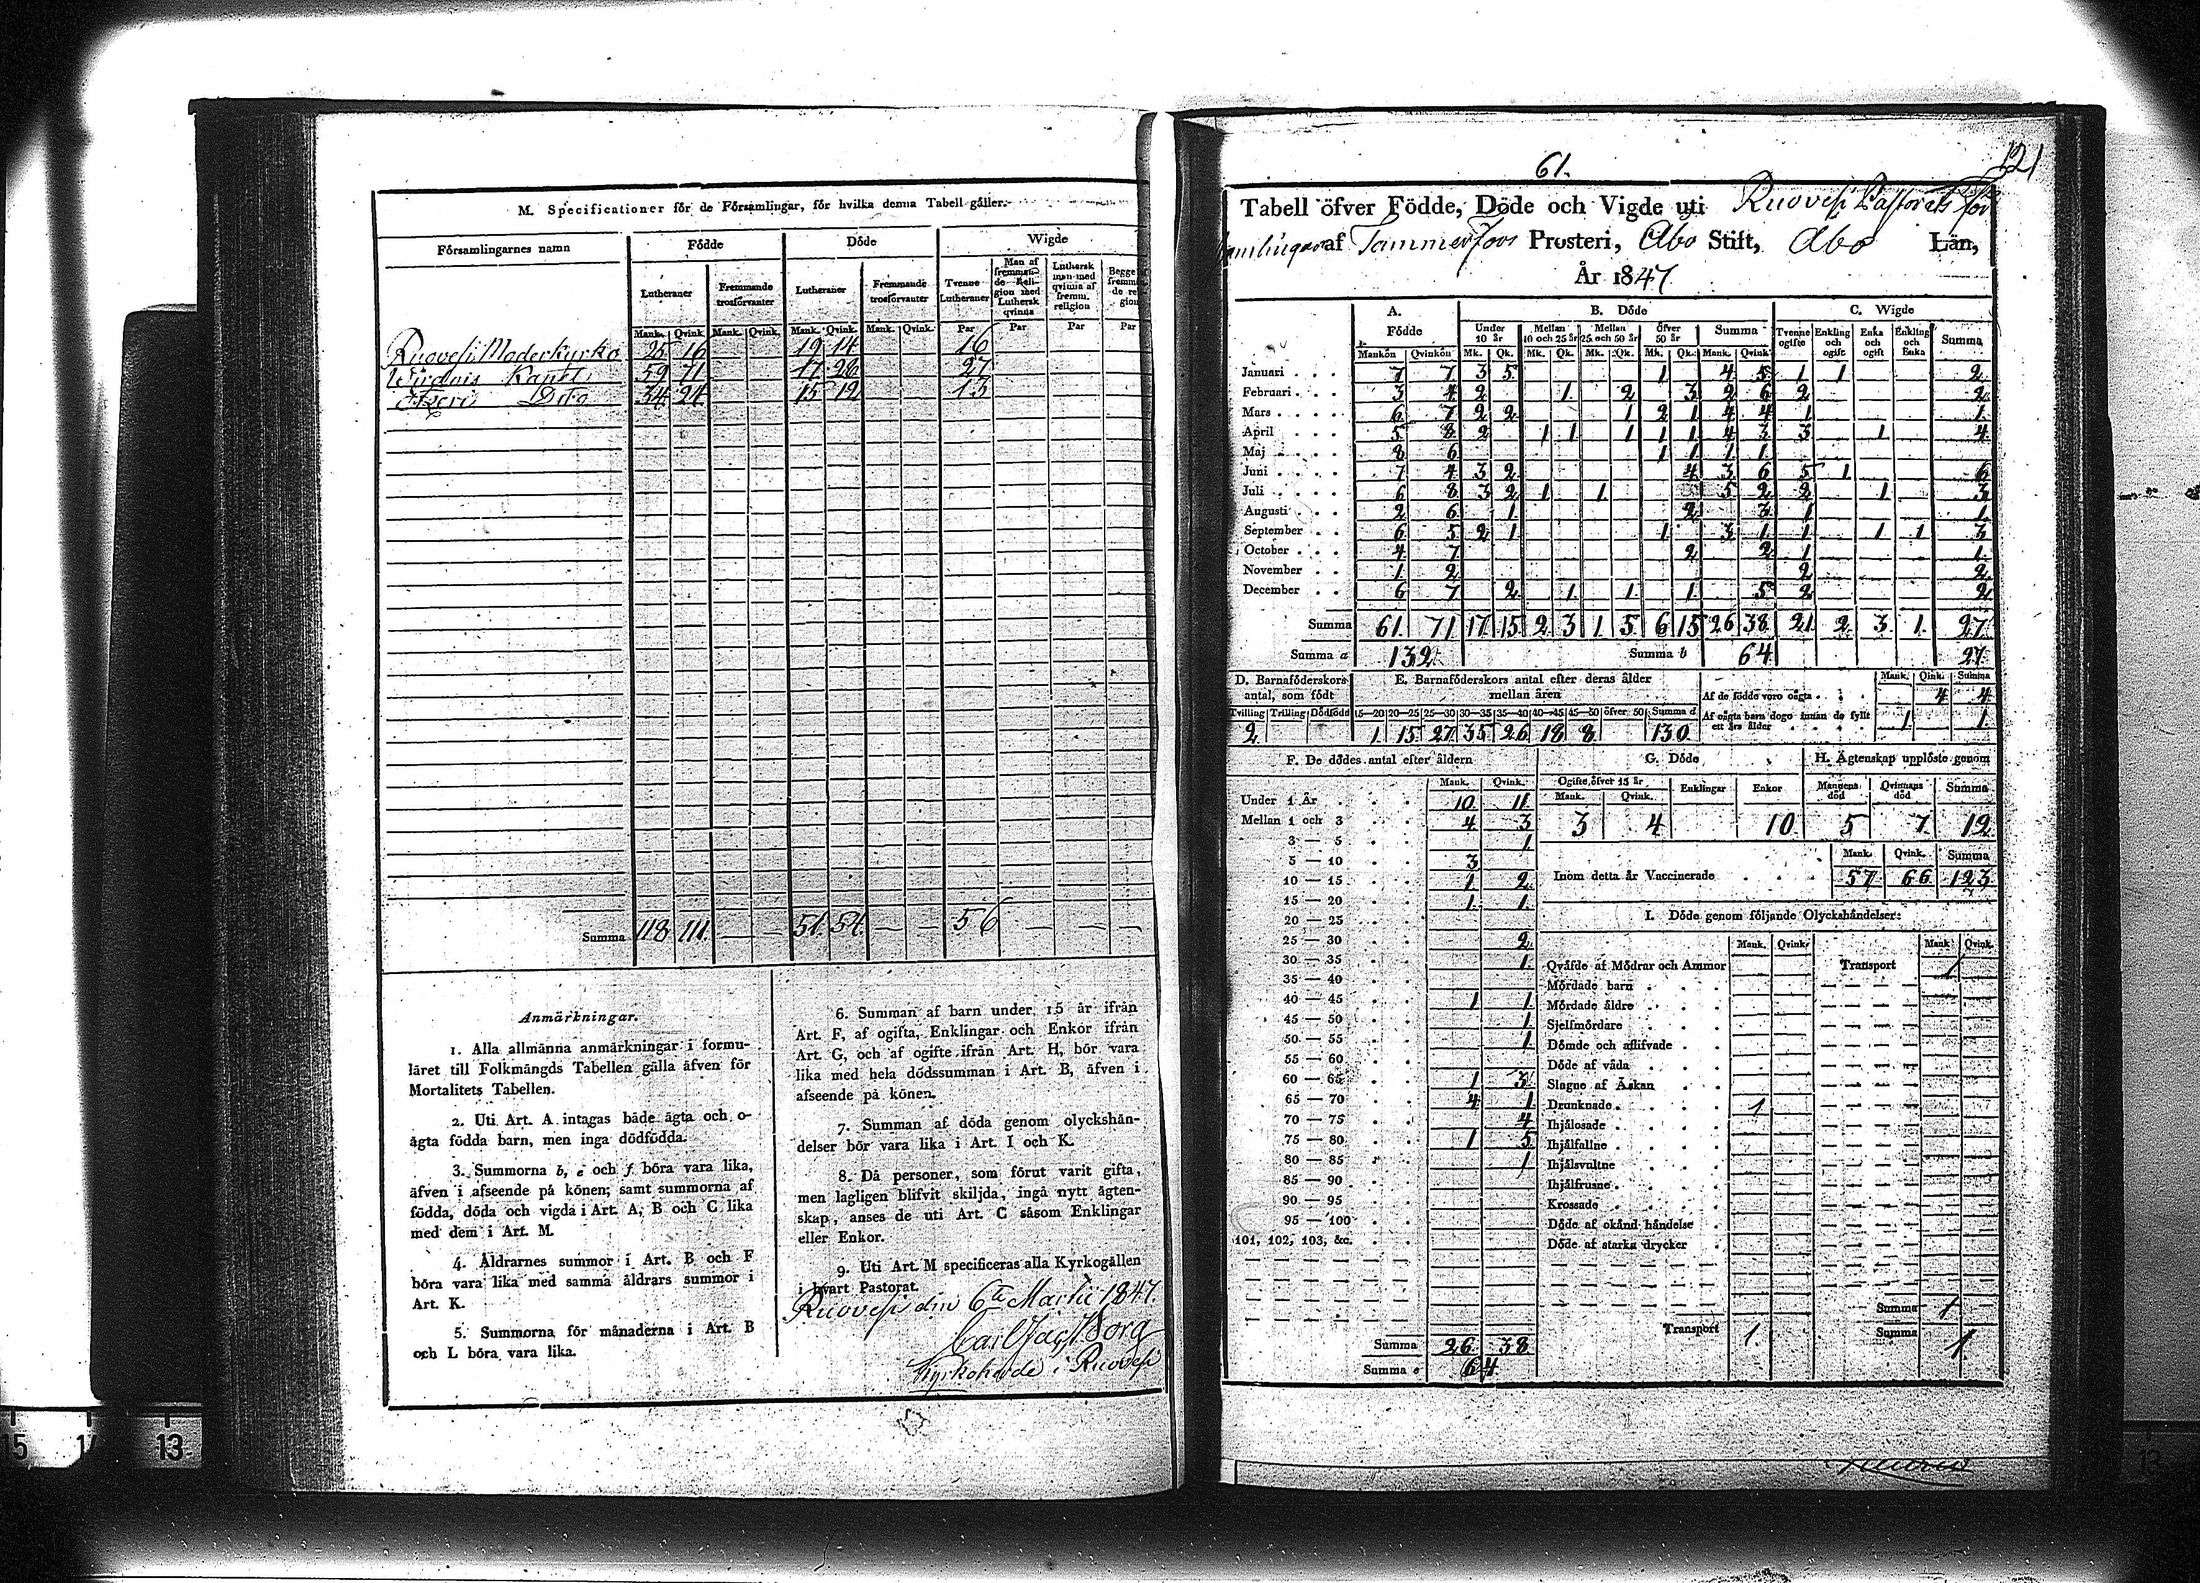 M. Specificationer för de Församlingar, för hvilka denna Tabell gäller.
Församlingarnes namn Födde Döde Wigde
Lutheraner Fremmande trosförvanter Lutheraner Fremmande trosförvanter Tvenne Lutheraner Man af fremmande Religion med Luthersk qvinna Luthersk man med qvinna af fremm. religion
Mank. Qvink. Mank. Qvink. Mank. Qvink. Mank. Qvink. Par Par Par Par
Ruovesi Moderkyrko 25 16 19 14 16
Wirdois Kapell 59 71 17 28 27
34 24 15 12 13
Summa 118 111 — — 51 54 — — 56 — — —
Anmärkningar.
1. Alla allmänna anmärkningar i formu-
läret till Folkmängds Tabellen gälla äfven för
Mortalitets Tabellen.
2. Uti Art. A intagas både ägta och o-
ägta födda barn, men inga dödfödda.
3. Summorna b, e och f böra vara lika,
äfven i afseende på könen; samt summorna af
födda, döda och vigda i Art. A, B och C lika
med dem i Art. M.
4. Åldrarnes summor i Art. B och F
böra vara lika med samma åldrars summor i
Art. K.
5. Summorna för månaderna i Art. B
och L böra vara lika.
6. Summan af barn under 15 år ifrån
Art. F, af ogifta, Enklingar och Enkor ifrån
Art. G, och af ogifte ifrån Art. H, bör vara
lika med hela dödssumman i Art. B, äfven i
afseende på könen.
7. Summan af döda genom olyckshän-
delser bör vara lika i Art. I och K.
8. Då personer, som förut varit gifta,
men lagligen blifvit skiljda, ingå nytt ägten-
skap, anses de uti Art. C såsom Enklingar
eller Enkor.
9. Uti Art. M specificeras alla Kyrkogällen
i hvart Pastorat.
Ruovesi den 6te Martii 1847
Kyrkoherde i Ruovesi
61.
121
Tabell öfver Födde, Döde och Vigde uti Ruovesi Pastorats för
samlingar af Tammerfors Prosteri, Åbo Stift, Åbo Län,
År 1847
A. B. Döde C. Wigde
Födde Under 10 år Mellan 10 och 25 år Mellan 25 och 50 år Öfver 50 år Summa Tvenne ogifte Enkling och ogift Enka och ogift Enkling och Enka Summa
Mankön Qvinkön Mk. Qk. Mk. Qk. Mk. Qk. Mk. Qk. Mank. Qvink.
Januari 7 7 3 5 1 4 5 1 1 2
Februari 3 4 2 1 2 3 2 6 2 2
Mars 6 7 2 2 1 2 1 4 4 1 1
April 5 8 2 1 1 1 1 1 4 3 3 1 4
Maj 8 6 1 1 1 1
Juni 7 4 3 2 4 3 6 5 1 6
Juli 6 8 3 2 1 1 5 2 2 1 3
Augusti 2 6 1 2 3 1 1
September 6 5 2 1 1 3 1 1 1 1 3
October 4 7 2 2 1 1
November 1 2 2 2
December 6 7 2 1 1 1 5 2 2
Summa 61 71 17 15 2 3 1 5 6 15 26 38 21 2 3 1 27
Summa a 132 Summa b 64 27
D. Barnaföderskors antal, som födt E. Barnaföderskors antal efter deras ålder mellan åren
Tvilling Trilling Dödfödd 15—20 20—25 25—30 30—35 35—40 40—45 45—50 öfver 50 Summa d
2 1 15 27 35 26 18 8 130
Mank. Qink. Summa
Af de födde voro oägta 4 4
Af oägta barn dogo innan de fyllt ett års ålder 1 1
F. De dödes antal efter åldern
Mank. Qvink.
Under 1 År 10 11
Mellan 1 och 3 4 3
3 — 5 1
5 — 10 3
10 — 15 1 2
15 — 20 1 1
20 — 25
25 — 30 2
30 — 35 1
35 — 40
40 — 45 1 1
45 — 50 1
50 — 55 1
55 — 60
60 — 65 1 3
65 — 70 4 1
70 — 75 4
75 — 80 1 5
80 — 85 1
85 — 90
90 — 95
95 — 100
101, 102, 103, &c.
Summa 26 38
Summa e 64
G. Döde
Ogifte öfver 15 år Enklingar Enkor
Mank. Qvink.
3 4 10
H. Ägtenskap upplöste genom
Mannens död Qvinnans död Summa
5 7 12
Mank. Qvink. Summa
Inom detta år Vaccinerade 57 66 123
I. Döde genom följande Olyckshändelser:
Mank. Qvink. Mank. Qvink.
Qväfde af Mödrar och Ammor Transport 1
Mördade barn
Mördade äldre
Sjelfmördare
Dömde och aflifvade
Döde af våda
Slagne af Åskan
Drunknade 1
Ihjälosade
Ihjälfallne
Ihjälsvultne
Ihjälfrusne
Krossade
Döde af okänd händelse
Döde af starka drycker
Summa 1
Transport 1 Summa 1
15 13